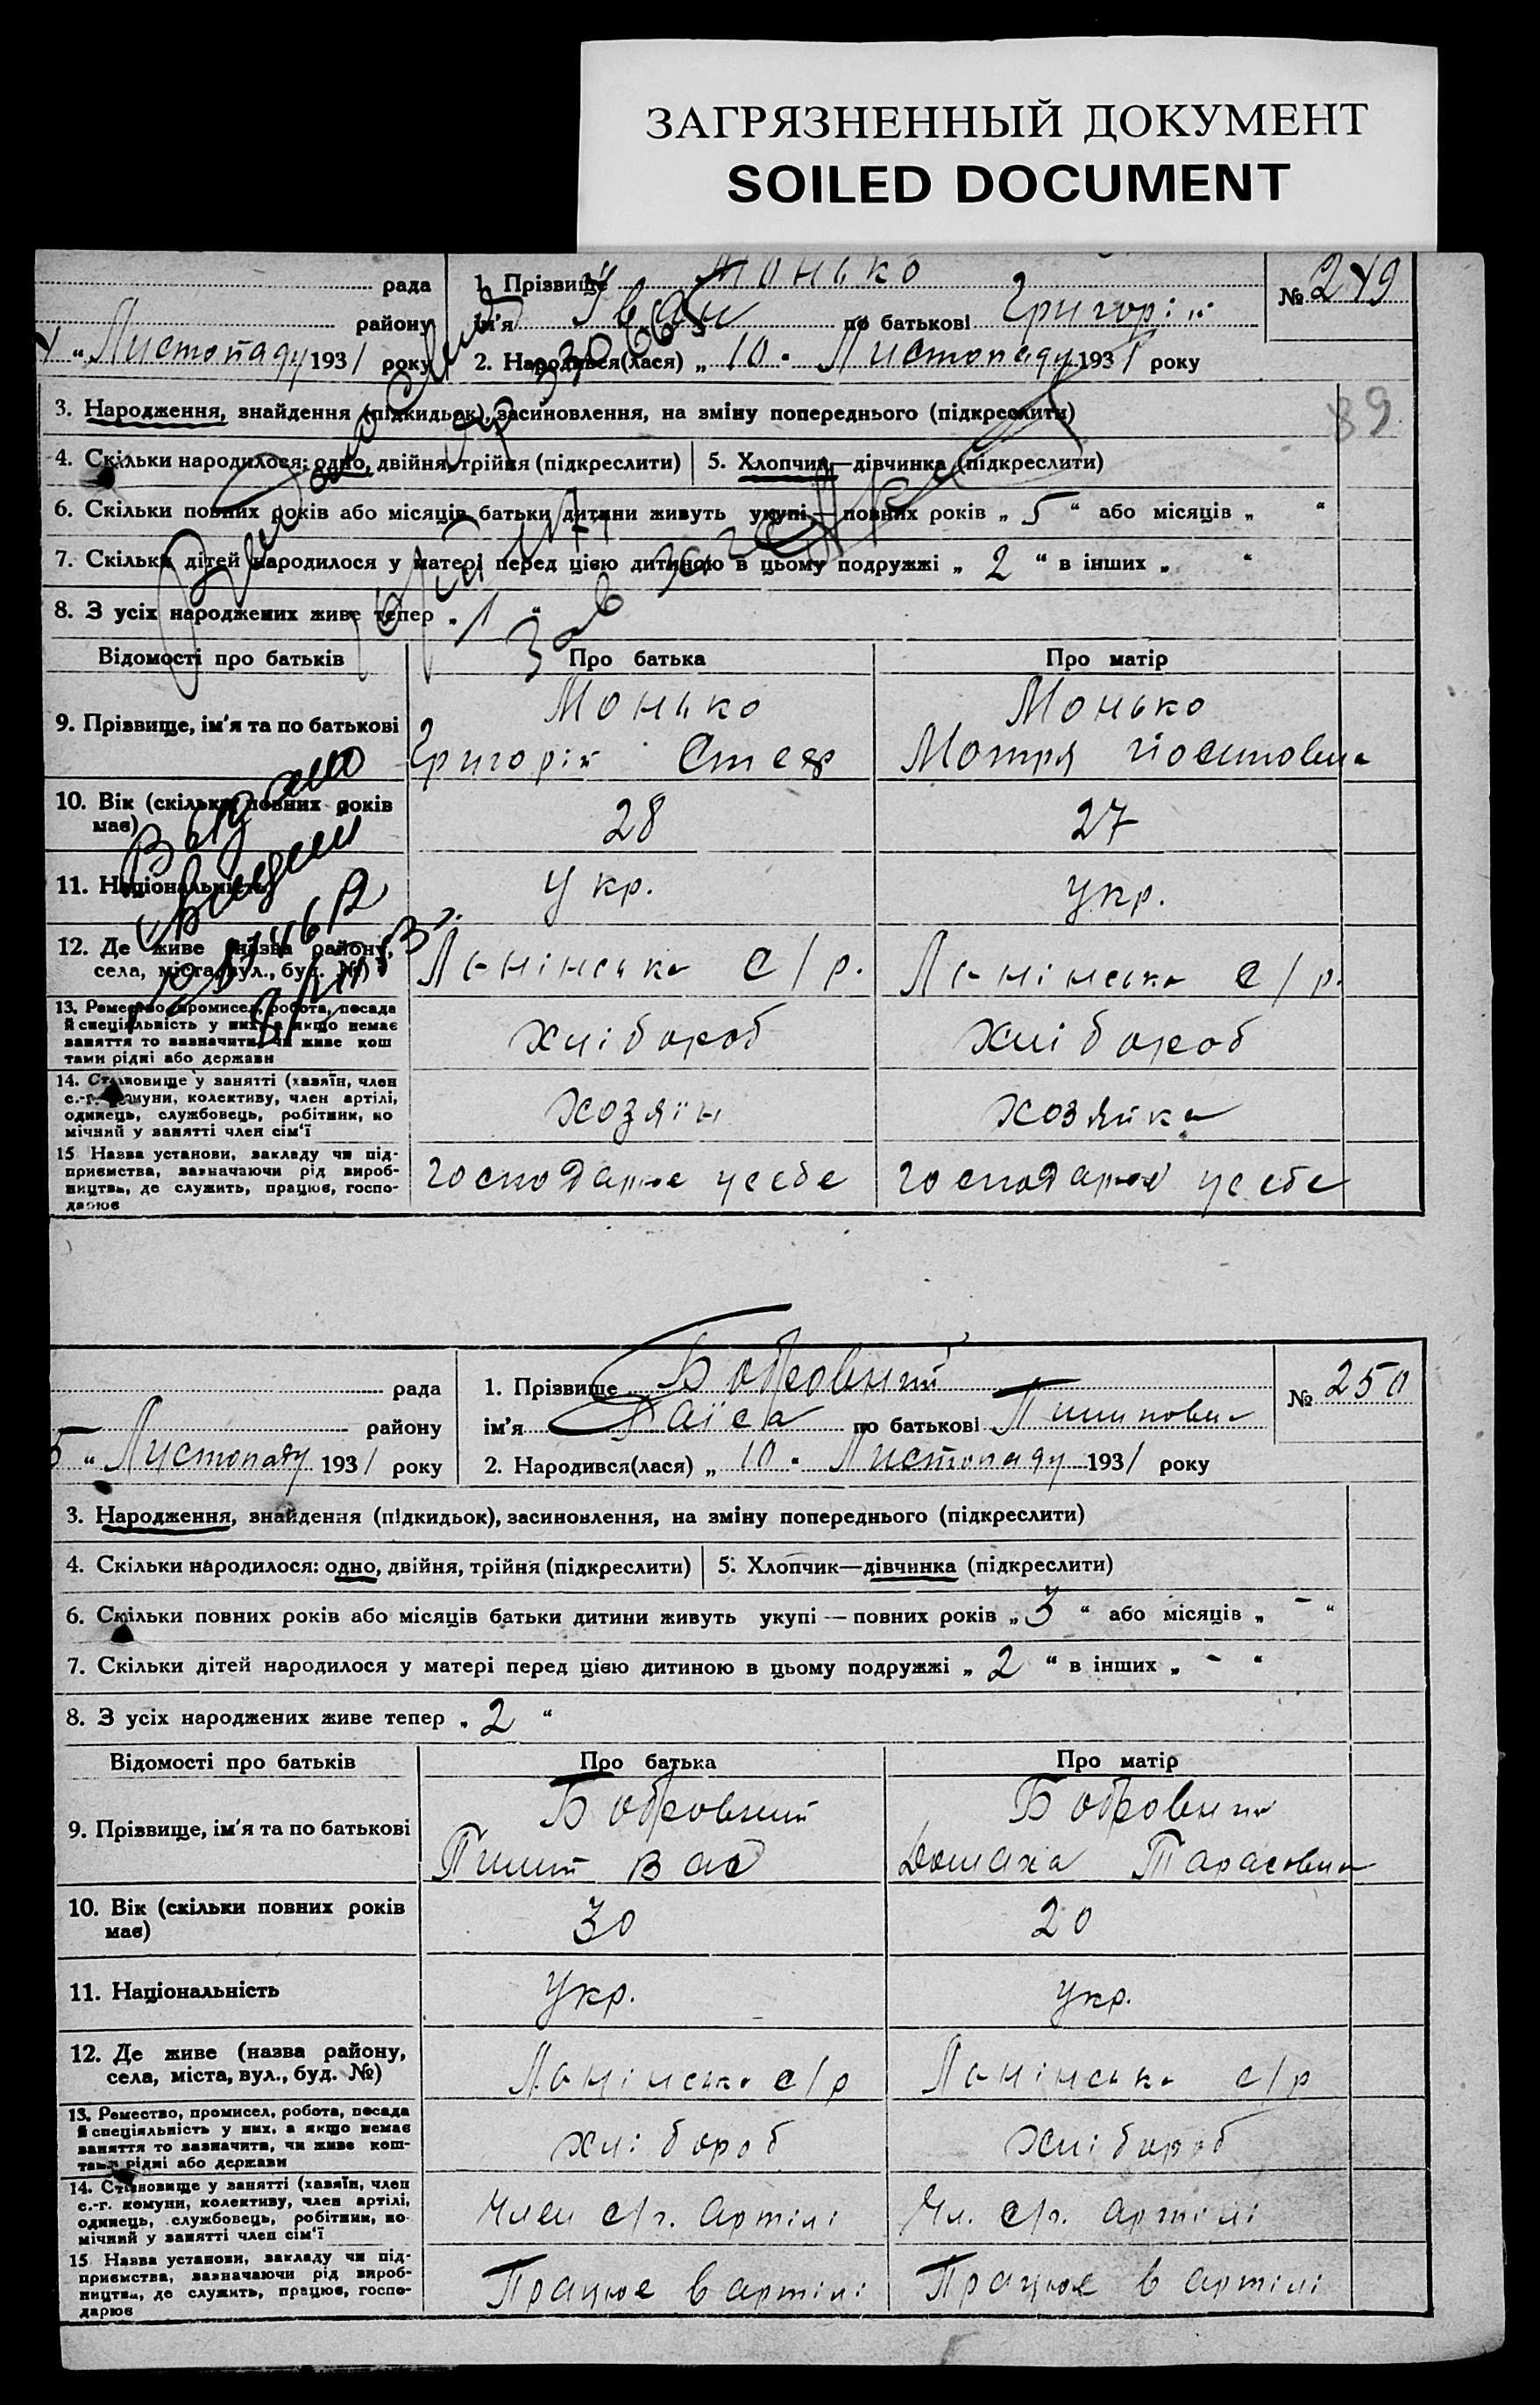 ЗАГРЯЗНЕННЫЙ ДОКУМЕНТ
SOILED DOCUMENT
рада
1. Прізвище Монько
№ 249
району
ім'я Іван по батькові Григор.
" Листопаду 1931 року
2. Народився(лася) „ 10 " Листопаду 1931 року
89
3. Народження, знайдення (підкидьок), засиновлення, на зміну попереднього (підкреслити)
4. Скільки народилося: одно, двійня, трійня (підкреслити) 5. Хлопчик—дівчинка (підкреслити)
6. Скільки повних років або місяців батьки дитини живуть укупі — повних років „ 5 “ або місяців „ “
7. Скільки дітей народилося у матері перед цією дитиною в цьому подружжі „ 2 “ в інших „ “
8. З усіх народжених живе тепер „ 1 “
Відомості про батьків Про батька Про матір
9. Прізвище, ім'я та по батькові
Монько Монько
Григорій Стеф Мотря Йосиповна
10. Вік (скільки повних років має) 28 27
11. Національність Укр. Укр.
12. Де живе (назва району, села, міста, вул., буд. №) Ленінська С/р. Ленінська С/р.
13. Ремество, промисел, робота, посада
й спеціяльність у них, а якщо немає
заняття то зазначити, чи живе кош
тами рідні або держави
хлібороб хлібороб
14. Становище у занятті (хазяїн, член
с.-г. комуни, колективу, член артілі,
одинець, службовець, робітник, по
мічний у занятті член сім'ї
хозяїн хозяйка
15 Назва установи, закладу чи під-
приємства, зазначаючи рід вироб-
ництва, де служить, працює, госпо-
дарює
господарює у себе господарює у себе
Видано
рада
1. Прізвище Бобровний
№ 250
району
ім'я Раїса по батькові Пилиповна
5 “ Листопаду 1931 року
2. Народився(лася) „ 10 " Листопаду 1931 року
3. Народження, знайдення (підкидьок), засиновлення, на зміну попереднього (підкреслити)
4. Скільки народилося: одно, двійня, трійня (підкреслити) 5. Хлопчик—дівчинка (підкреслити)
6. Скільки повних років або місяців батьки дитини живуть укупі — повних років „ 3 “ або місяців „ - “
7. Скільки дітей народилося у матері перед цією дитиною в цьому подружжі „ 2 “ в інших „ - “
8. З усіх народжених живе тепер „ 2 “
Відомості про батьків Про батька Про матір
9. Прізвище, ім'я та по батькові
Бобровний Бобровна
Пилип Вас Домаха Тарасовна
10. Вік (скільки повних років має) 30 20
11. Національність Укр. Укр.
12. Де живе (назва району, села, міста, вул., буд. №) Ленінська с/р Ленінська с/р
13. Ремество, промисел, робота, посада
й спеціяльність у них, а якщо немає
заняття то зазначити, чи живе кош-
тами рідні або держави
хлібороб хлібороб
14. Становище у занятті (хазяїн, член
с.-г. комуни, колективу, член артілі,
одинець, службовець, робітник, по-
мічний у занятті член сім'ї
Член с/г. артілі Чл. с/г. артілі
15 Назва установи, закладу чи під-
приємства, зазначаючи рід вироб-
ництва, де служить, працює, госпо-
дарює
Працює в артілі Працює в артілі